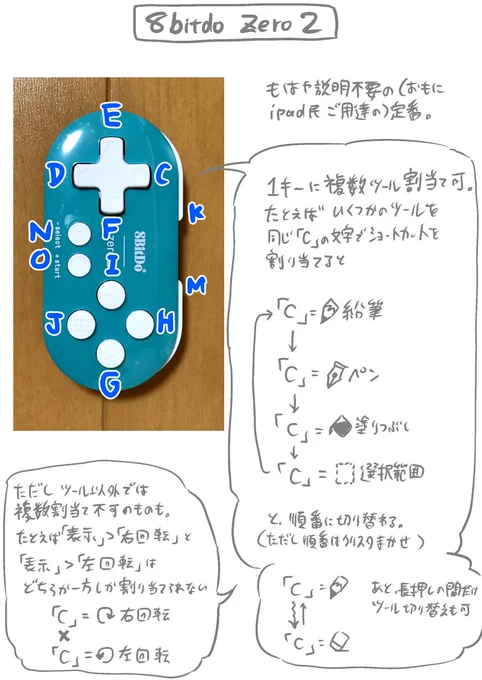 8bitdo Zero 2
もはや説明不要の(おもに
ipad民ご用達の)定番。
E
D
C
K
F
N
O
I
M
J
H
G
- select
+ start
zero
8BitDo
1キーに複数ツール割当て可。
たとえばいくつかのツールを
同じ「C」の文字でショートカットを
割り当てると
「C」= 鉛筆
「C」= ペン
「C」= 塗りつぶし
「C」= 選択範囲
と、順番に切り替わる。
(ただし順番はクリスタまかせ)
ただしツール以外では
複数割当て不可のものも。
たとえば「表示」>「右回転」と
「表示」>「左回転」は
どちらか一方しか割り当てられない
「C」= 右回転
×
「C」= 左回転
「C」=
「C」=
あと、長押しの間だけ
ツール切り替えも可